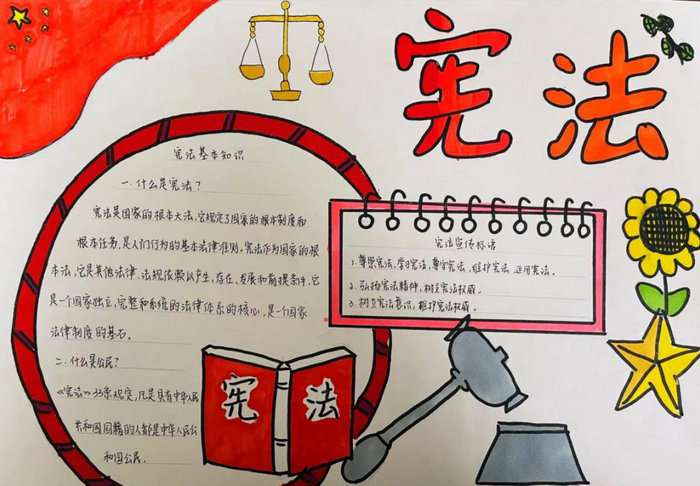 宪法
宪法基本知识
一.什么是宪法？
宪法是国家的根本大法，它规定了国家的根本制度和
根本任务，是人们行为的基本法律准则，宪法作为国家的根
本法，它是其他法律、法规依赖以产生、存在、发展和前提条件，它
是一个国家独立、完整和系统的法律体系的核心，是一个国家
法律制度的基石。
二.什么是公民？
《宪法》33条规定，凡是具有中华人民
共和国国籍的人都是中华人民公
和国公民。
宪法宣传标语
1.尊崇宪法，学习宪法，遵守宪法，维护宪法，运用宪法。
2.弘扬宪法精神，树立宪法权威。
3.树立宪法意识，维护宪法权威。
宪法